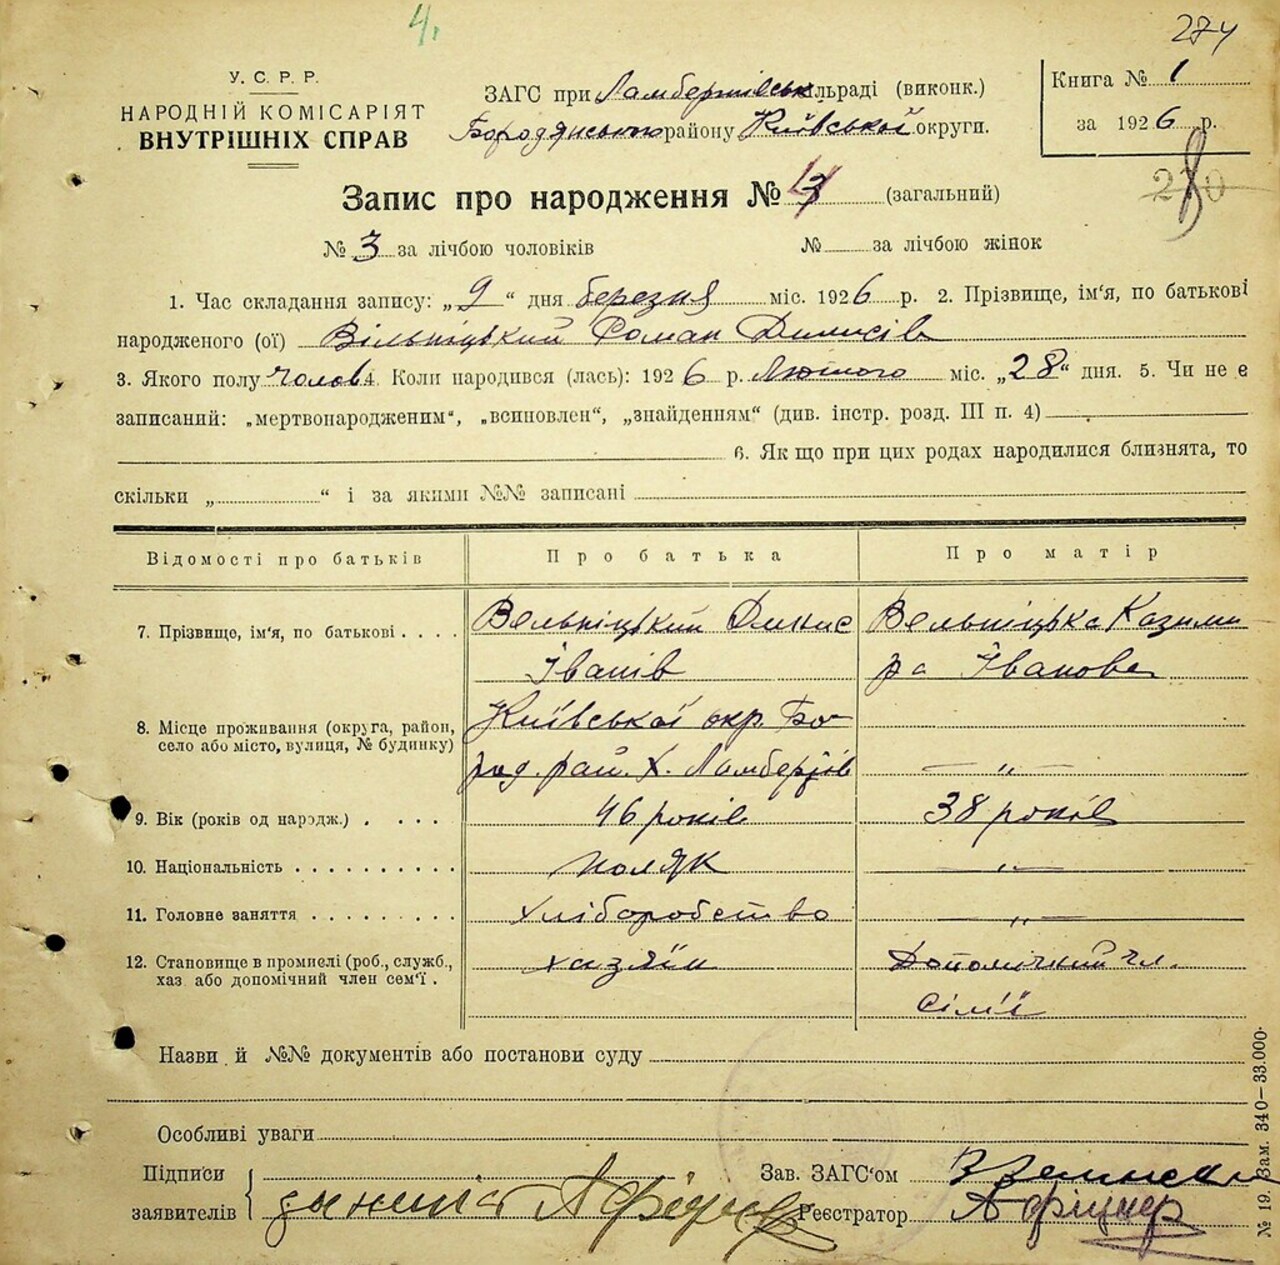 4.
274
У. С. Р. Р.
НАРОДНІЙ КОМІСАРІЯТ
ВНУТРІШНІХ СПРАВ
ЗАГС при Ламбертівськ ільраді (виконк.)
Бородянського району Київської округи.
Книга № 1
за 1926 р.
Запис про народження № 3 (загальний)
№ 3 за лічбою чоловіків № за лічбою жінок
1. Час складання запису: „9“ дня березня міс. 1926 р. 2. Прізвище, ім‘я, по батькові
народженого (ої) Вільніцький Роман Динисів
3. Якого полу чолов 4. Коли народився (лась): 1926 р. Лютого міс. „28“ дня. 5. Чи не є
записаний: „мертвонародженим“, „всиновлен“, „знайденням“ (див. інстр. розд. III п. 4)
6. Як що при цих родах народилися близнята, то
скільки „ “ і за якими №№ записані
Відомості про батьків Про батька Про матір
7. Прізвище, ім‘я, по батькові . . . . Вельніцький Динис Вельніцька Казими
Іванів ра Іванова
8. Місце проживання (округа, район, село або місто, вулиця, № будинку) Київської окр. Бо-
род. рай. Х. Ламбертів — „ —
9. Вік (років од народж.) . . . . 46 років 38 років
10. Національність . . . . . . . . . . поляк — „ —
11. Головне заняття . . . . . . . . . хліборобство — „ —
12. Становище в промислі (роб., служб., хаз. або допомічний член сем‘ї . хазяїн Допомічний чл.
сім'ї
Назви й №№ документів або постанови суду
Особливі уваги
Підписи
заявителів
Зав. ЗАГС‘ом
Реєстратор А Фіцнер
№ 19. Зам. 340—33.000.